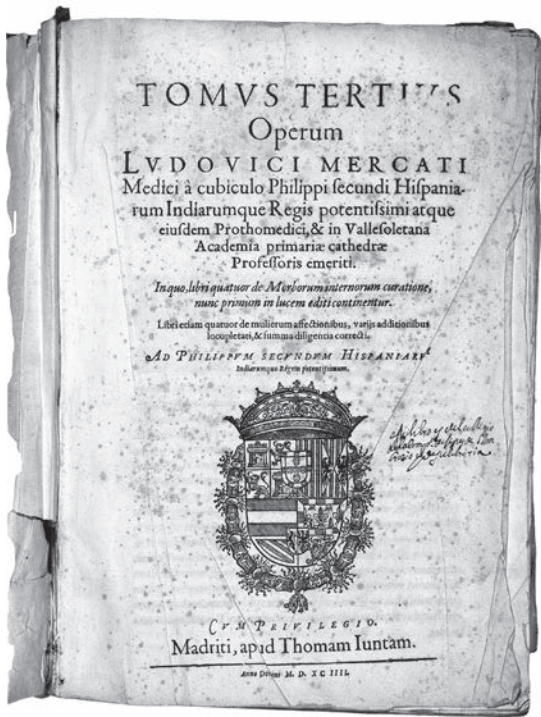 TOMVS TERTIVS
Operum
LVDOVICI MERCATI
Medici à cubiculo Philippi ſecundi Hiſpania-
rum Indiarumque Regis potentiſsimi atque
eiuſdem Prothomedici, & in Valleſoletana
Academia primariæ cathedræ
Profeſſoris emeriti.
In quo, libri quatuor de Morborum internorum curatione,
nunc primum in lucem editi continentur.
Libri etiam quatuor de mulierum affectionibus, varijs additionibus
locupletati, & ſumma diligentia correcti.
AD PHILIPPVM SECVNDVM HISPANIARV̄
Indiarumque Regem potentiſsimum.
CVM PRIVILEGIO.
Madriti, apud Thomam Iuntam.
Anno Domini M. D. XCIIII.